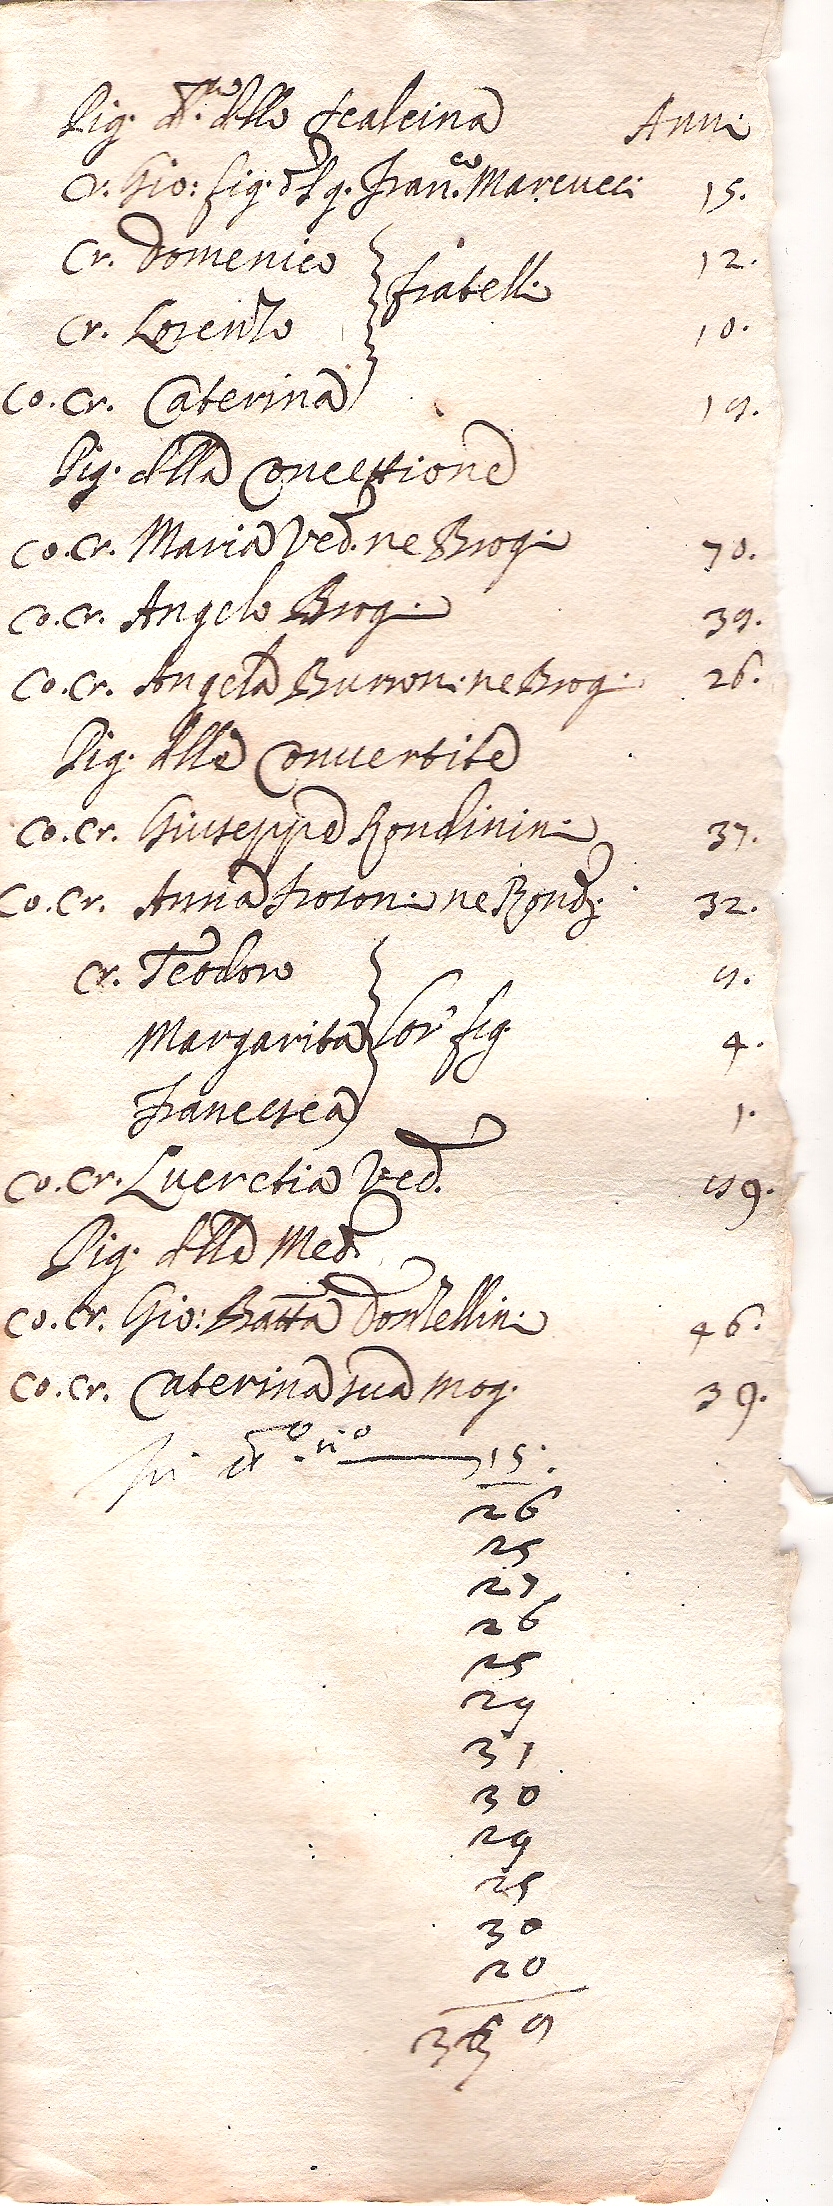 Pig. dello Scalcina Anni
Cr. Gio: fig. d Sig. Fran.co Marcucci 15.
Cr. Domenico 12.
fratelli
Cr. Lorenzo 10.
Co. Cr. Caterina 19.
Pig. della Concettione
Co. Cr. Maria Ved. ne Brogi 70.
Co. Cr. Angelo Brogi 39.
Co. Cr. Angela Burroni ne Brogi 26.
Pig. delle Convertite
Co. Cr. Giuseppe Rondinini 37.
Co. Cr. Anna ne Rond. 32.
Cr. Teodoro 9.
Margarita lor fig. 4.
Francesca 1.
Co. Cr. Lucretia Ved.
Pig. della Med.
Co. Cr. Gio: Batta Donzellini 46.
Co. Cr. Caterina sua mog. 39.
15.
26
25
27
26
25
29
31
30
29
25
30
20